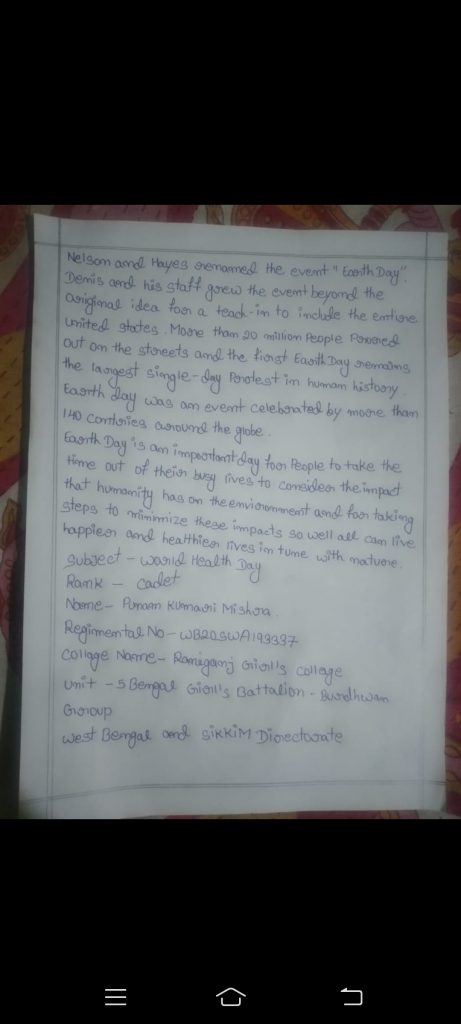 Nelson and Hayes renamed the event "Earth Day".
Denis and his staff grew the event beyond the
original idea for a teach-in to include the entire
united states. More than 20 million People Poured
out on the streets and the first Earth Day remains
the largest single-day Protest in human history.
Earth day was an event celebrated by more than
140 contries around the globe.
Earth Day is an important day for People to take the
time out of their busy lives to consider the impact
that humanity has on the environment and for taking
steps to minimize these impacts so well all can live
happier and healthier lives in tune with nature.
Subject - World Health Day
Rank - Cadet
Name - Punam Kumari Mishra.
Regimental No - WB20SWA193337
Collage Name - Raniganj Girl's college
Unit - 5 Bengal Girl's Battalion - Burdhwan
Group
West Bengal and SIKKIM Directorate